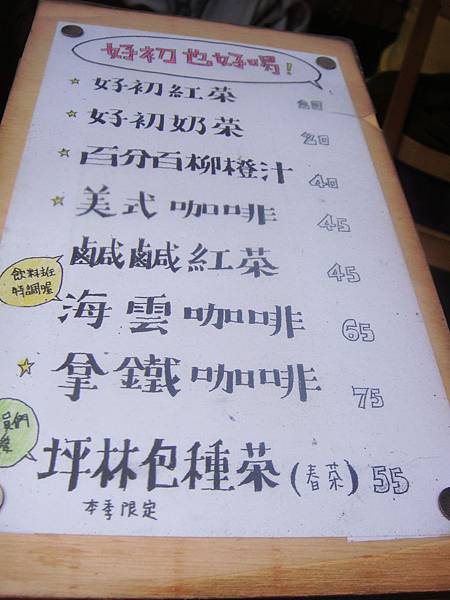 好初也好喝!
好初紅茶 20
好初奶茶 20
百分百柳橙汁 40
美式咖啡 45
鹹鹹紅茶 45
飲料班
特調喔
海雲咖啡 65
拿鐵咖啡 75
員們
後
坪林包種茶(春茶) 55
本季限定